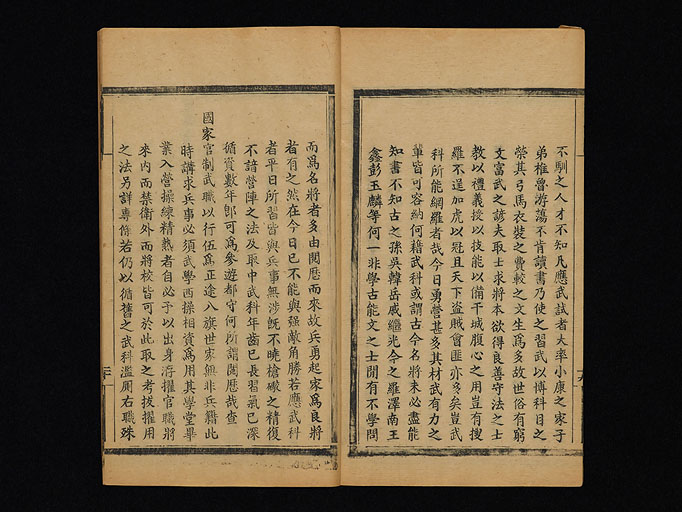 不馴之人才不知凡應武試者大率小康之家子
弟椎魯游蕩不肯讀書乃使之習武以博科目之
榮其弓馬衣裝之費較之文生爲多故世俗有窮
文富武之諺夫取士求將本欲得良善守法之士
教以禮義授以技能以備干城腹心之用豈有搜
羅不逞加虎以冠且天下盜賊會匪亦多矣豈武
科所能網羅者哉今日勇營甚多其材武有力之
軰皆可容納何稽武科或謂古今名將未必盡能
知書不知古之孫吳韓岳戚繼光今之羅澤南王
鑫彭玉麟等何一非學古能文之士閒有不學問
而爲名將者多由閱歷而來故兵勇起家爲良將
者有之然在今日已不能與强敵角勝若應武科
者平日所習皆與兵事無涉既不曉槍礮之精復
不諳營陣之法及取中武科年齒已長習氣已深
循資數年卽可爲參遊都守何所謂閱歷哉查
國家官制武職以行伍爲正途八旗世家無非兵籍此
時講求兵事必須武學西操相資爲用其學堂畢
業入營操練精熟者自必予以出身洊擢官職將
來內而禁衞外而將校皆可於此取之考拔擢用
之法另詳專條若仍以循舊之武科濫厠右職殊